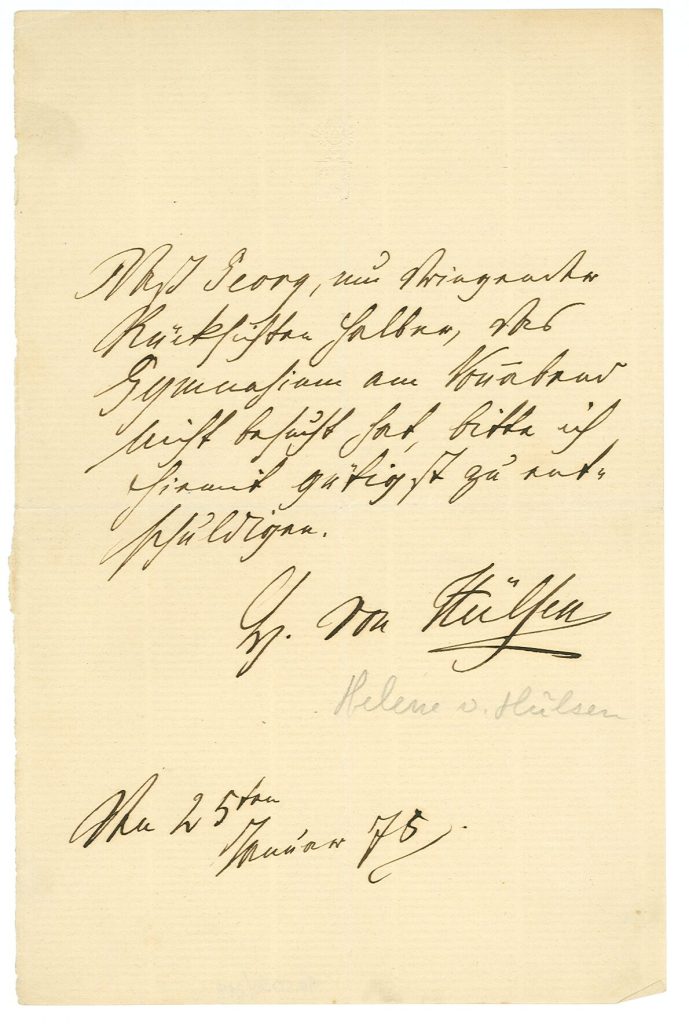 Daß Georg, nur dringender
Rücksichten halber, das
Gymnasium am Son̄abend
nicht besucht hat, bitte ich
hiemit gütigst zu ent-
schuldigen.
H. von Hülsen
Helene v. Hülsen
Den 25ten
Januar 75.